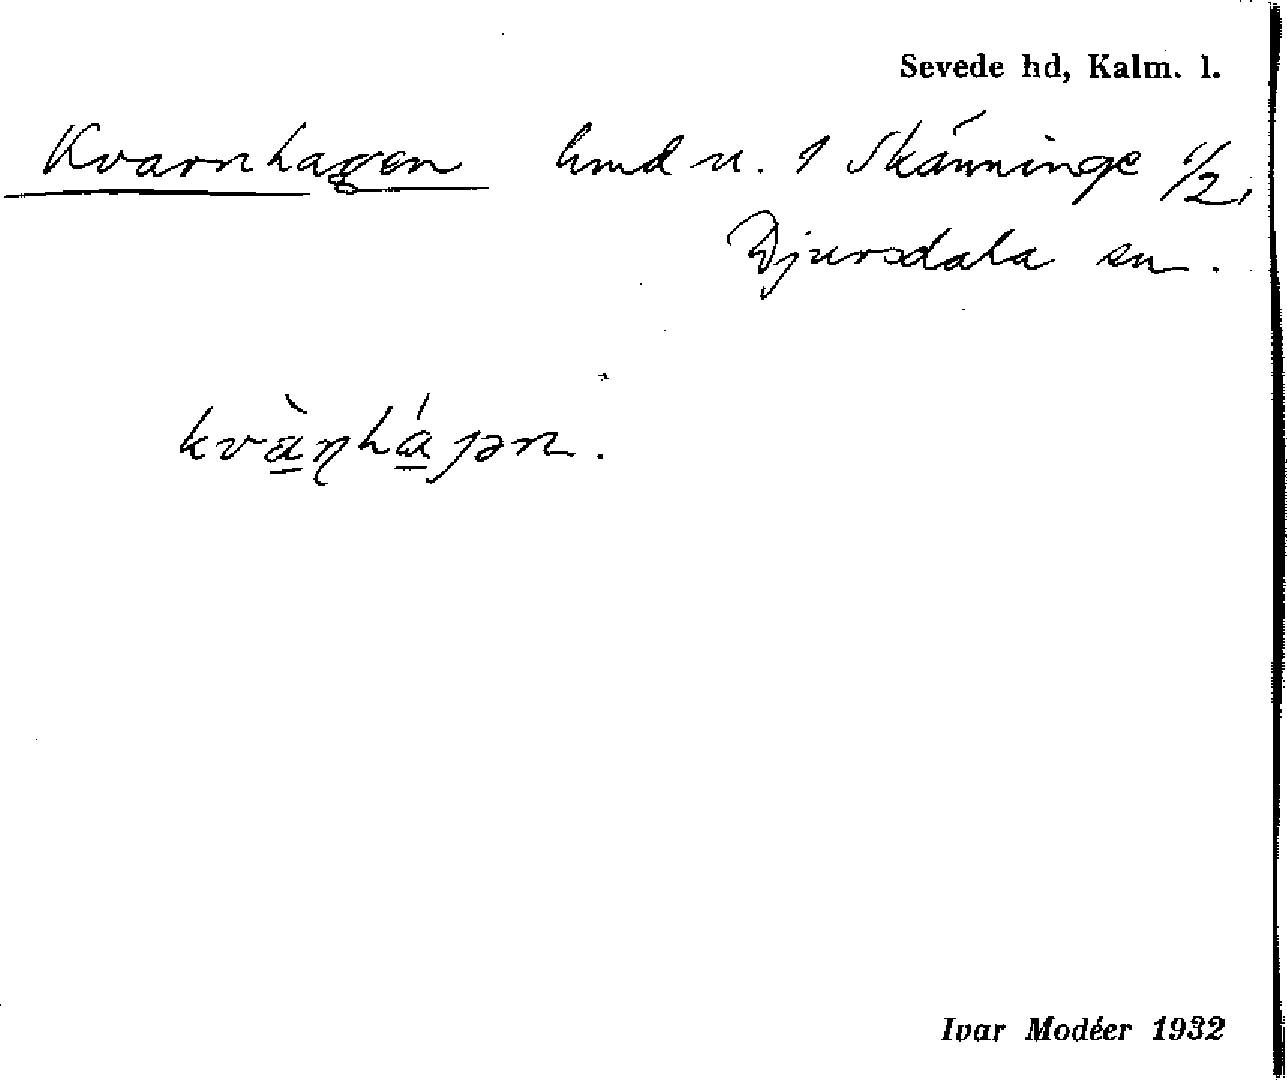 Sevede hd, Kalm. l.
Kvarnhagen hmd u. 1 Skänninge 1/2,
Djursdala sn.
kvàɳháɡən.
Ivar Modéer 1932